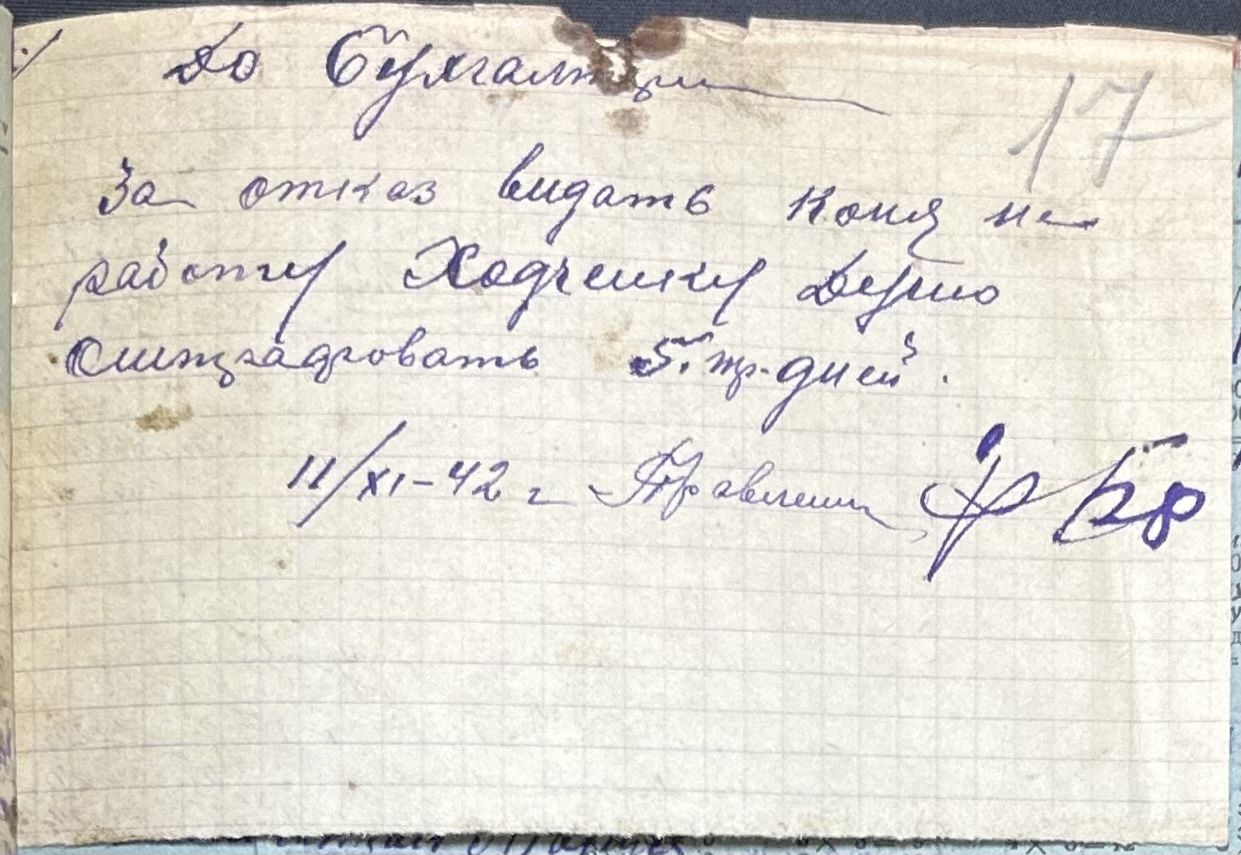 До Бухгалтерии
17
За отказ видать коня на
работу Ходченку Демно
Сштрафовать 5. тр-дней.
11/XI-42 г Правление